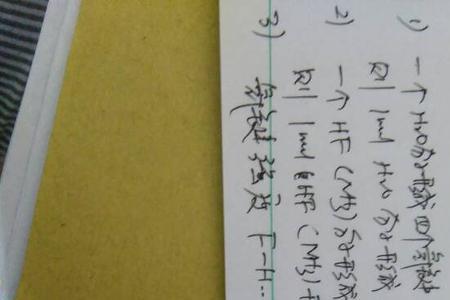 1) 一个H2O分子形成四个氢键
则 1mol H2O分子形成
2) 一个 HF (NH3) 分子形成
则 1mol HF (NH3)
3) 氢键强度 F-H…